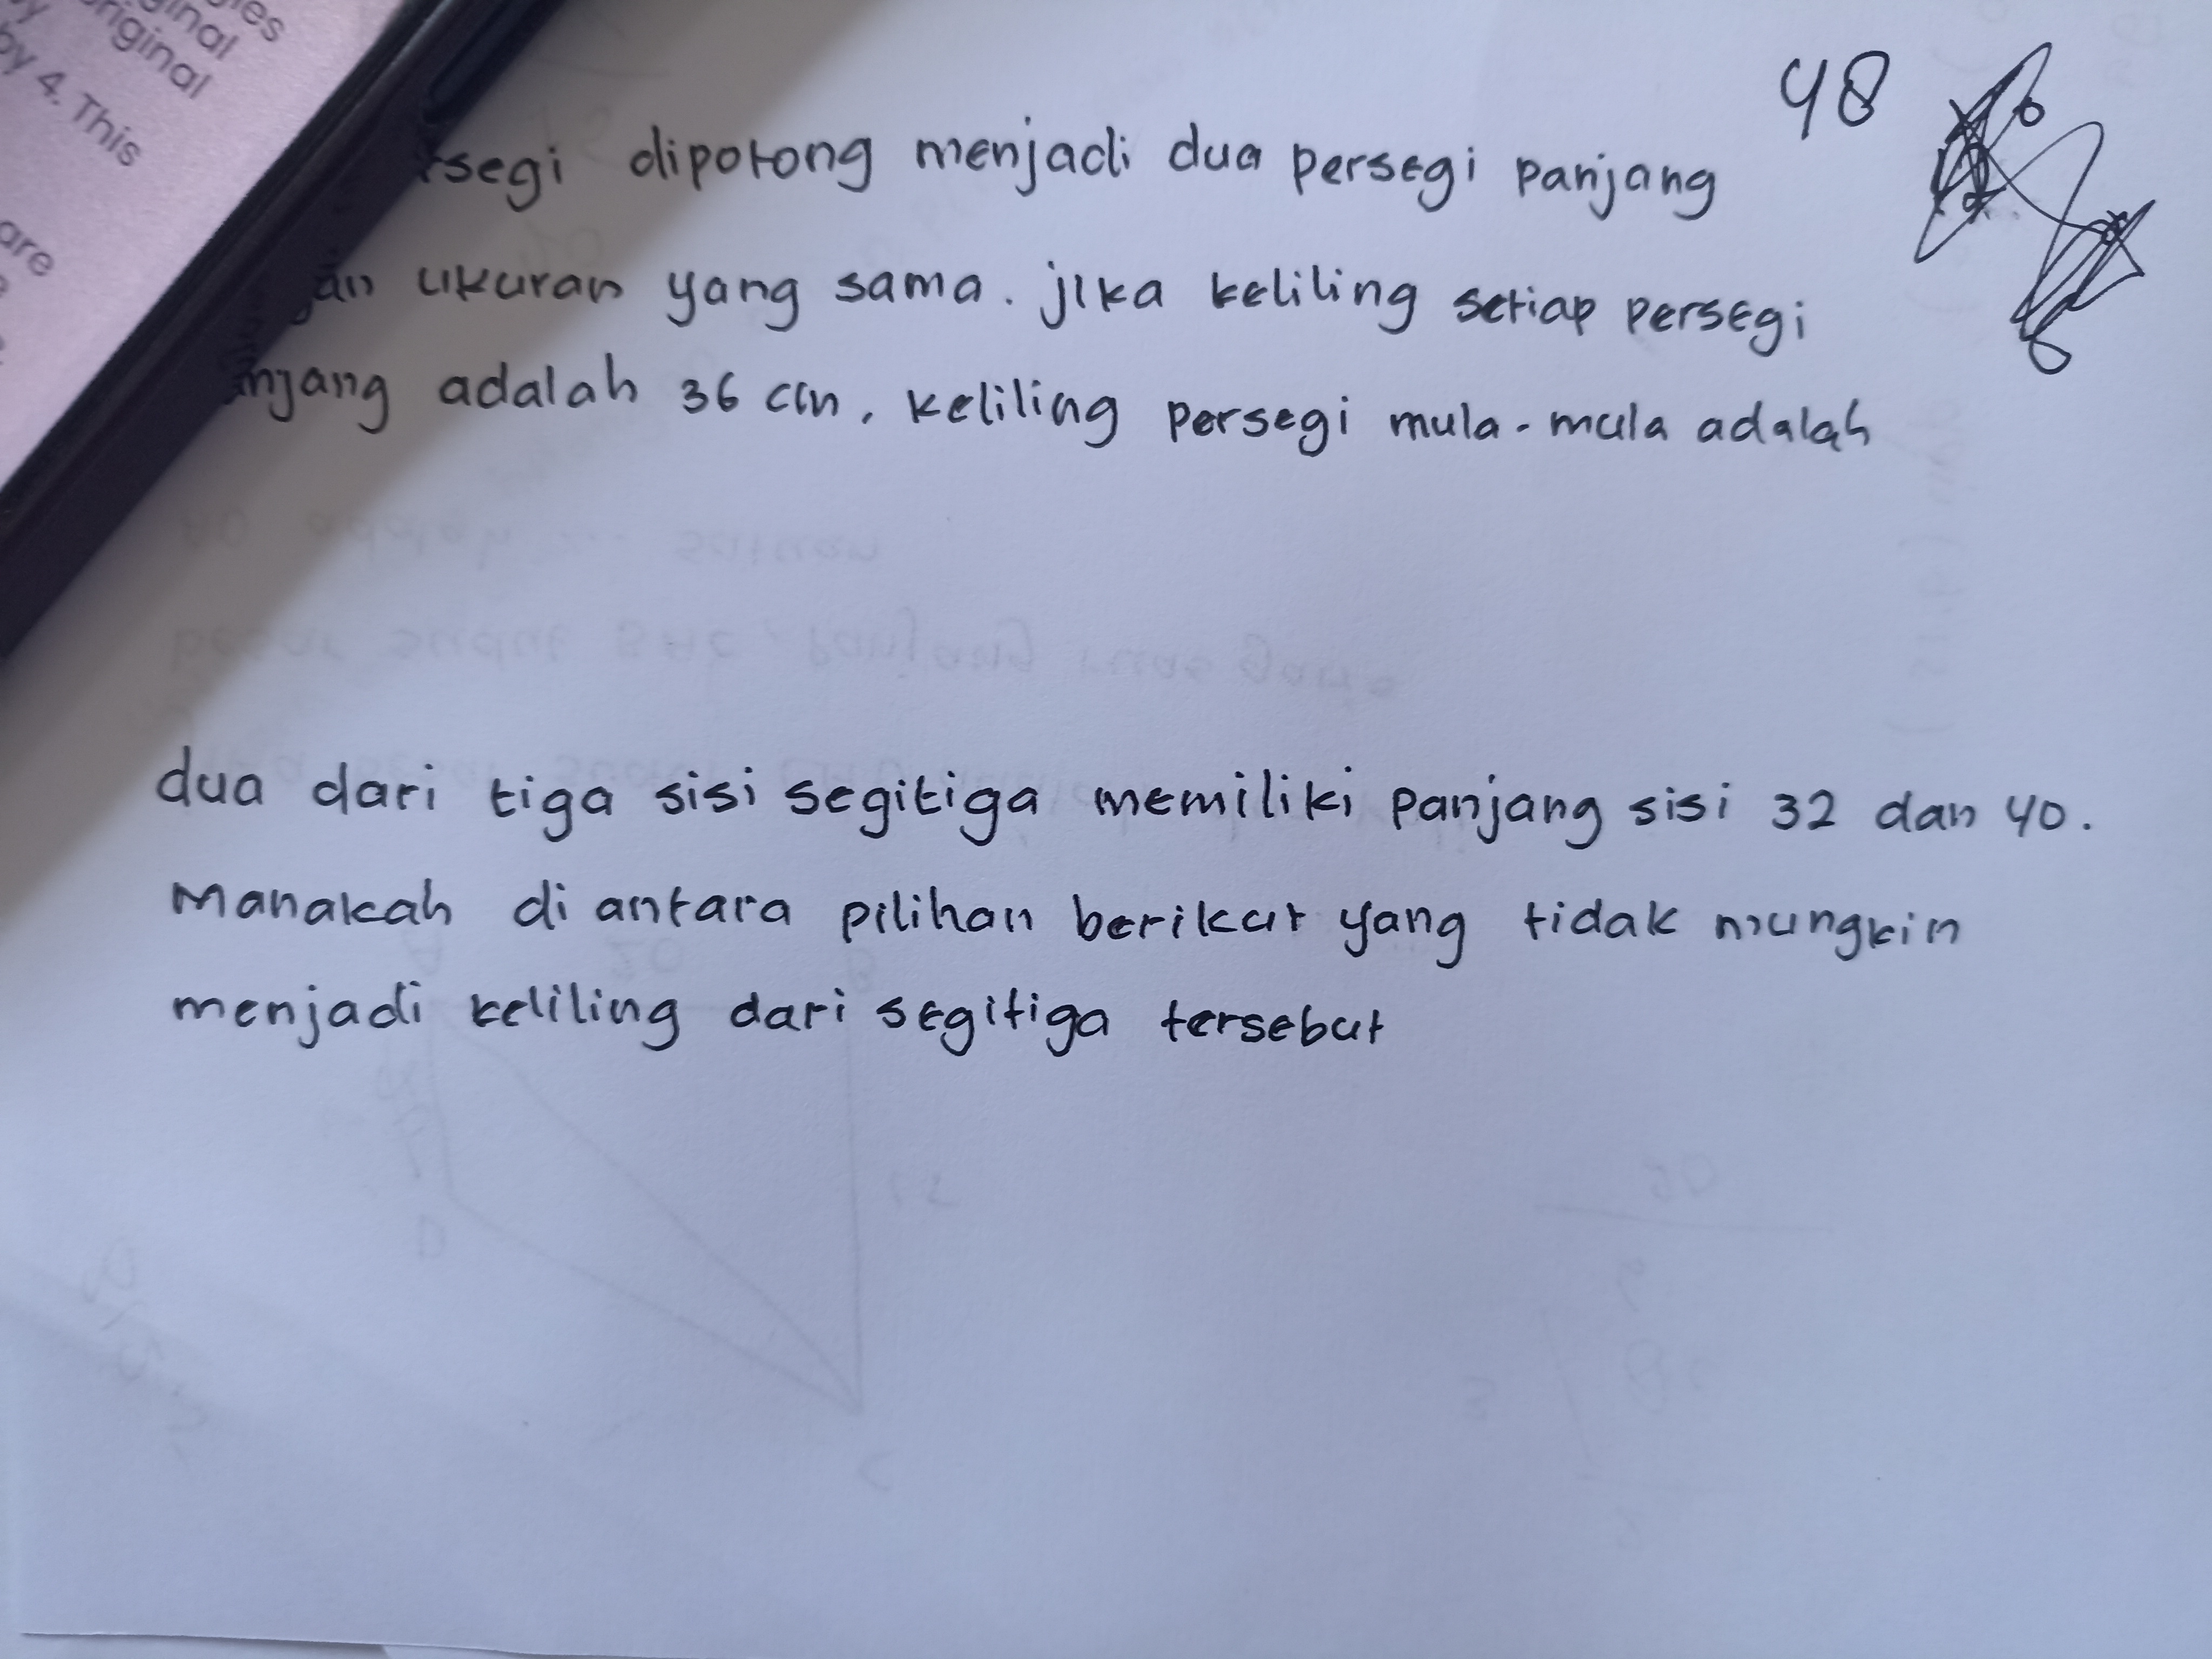 original
by 4. This
are
48
rsegi dipotong menjadi dua persegi panjang
gan ukuran yang sama. jika keliling setiap persegi
anjang adalah 36 cm, keliling persegi mula-mula adalah
dua dari tiga sisi segitiga memiliki panjang sisi 32 dan 40.
Manakah di antara pilihan berikut yang tidak mungkin
menjadi keliling dari segitiga tersebut